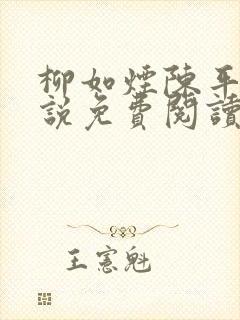 柳如煙陳平
說免費閱讀
王憲魁